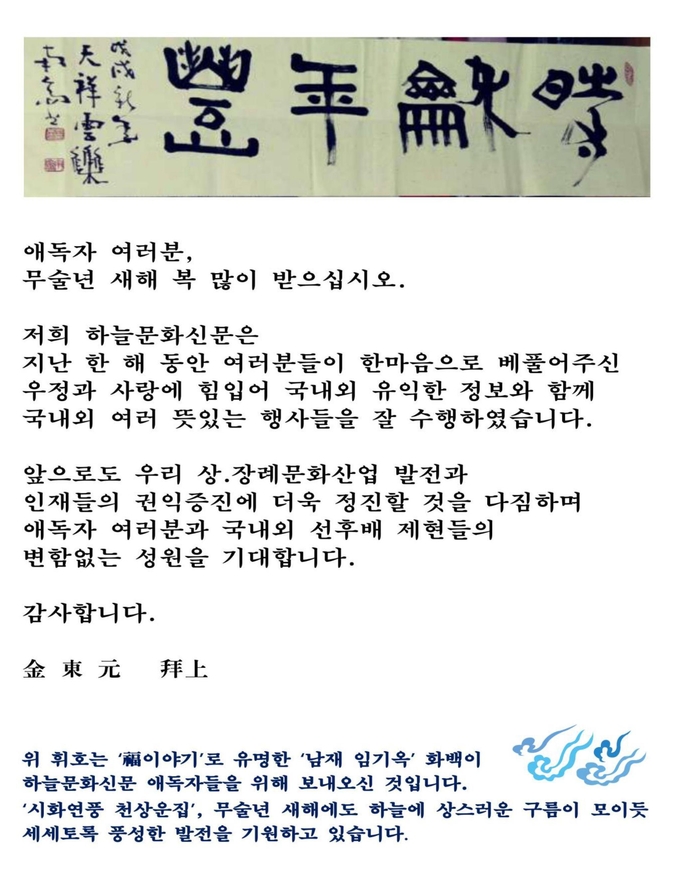 時龢年豐
戊戌新年
天祥雲雧
애독자 여러분,
무술년 새해 복 많이 받으십시오.
저희 하늘문화신문은
지난 한 해 동안 여러분들이 한마음으로 베풀어주신
우정과 사랑에 힘입어 국내외 유익한 정보와 함께
국내외 여러 뜻있는 행사들을 잘 수행하였습니다.
앞으로도 우리 상.장례문화산업 발전과
인재들의 권익증진에 더욱 정진할 것을 다짐하며
애독자 여러분과 국내외 선후배 제현들의
변함없는 성원을 기대합니다.
감사합니다.
金 東 元 拜上
위 휘호는 '福이야기'로 유명한 '남재 임기옥' 화백이
하늘문화신문 애독자들을 위해 보내오신 것입니다.
'시화연풍 천상운집', 무술년 새해에도 하늘에 상스러운 구름이 모이듯
세세토록 풍성한 발전을 기원하고 있습니다.